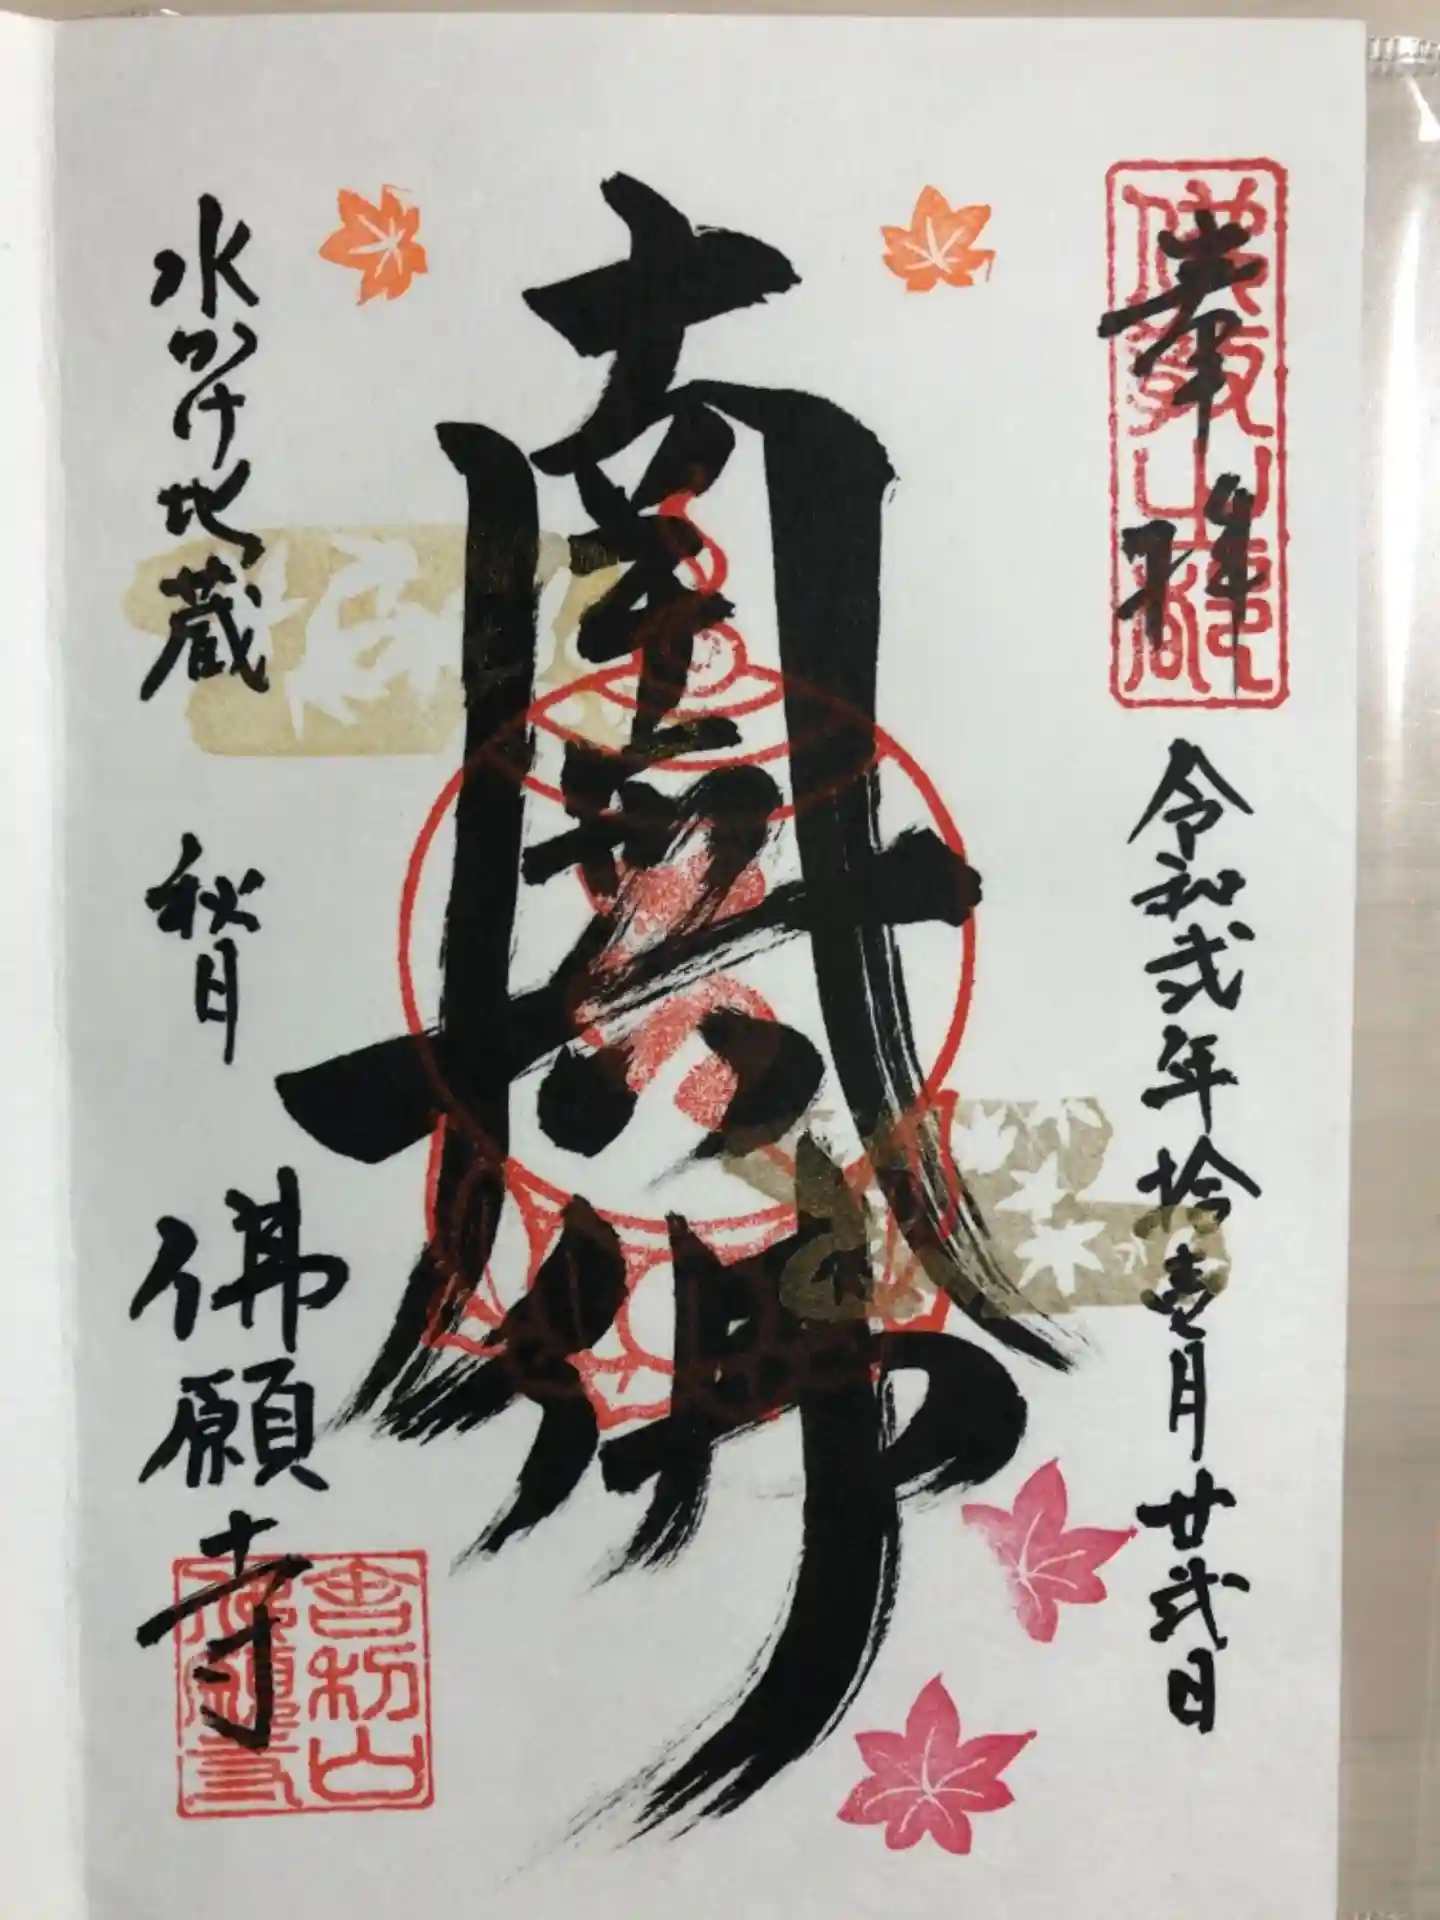 奉拝
令和弐年拾壱月廿弐日
南無
佛
水かけ地蔵
秋月
佛願寺
舎利山
佛願寺